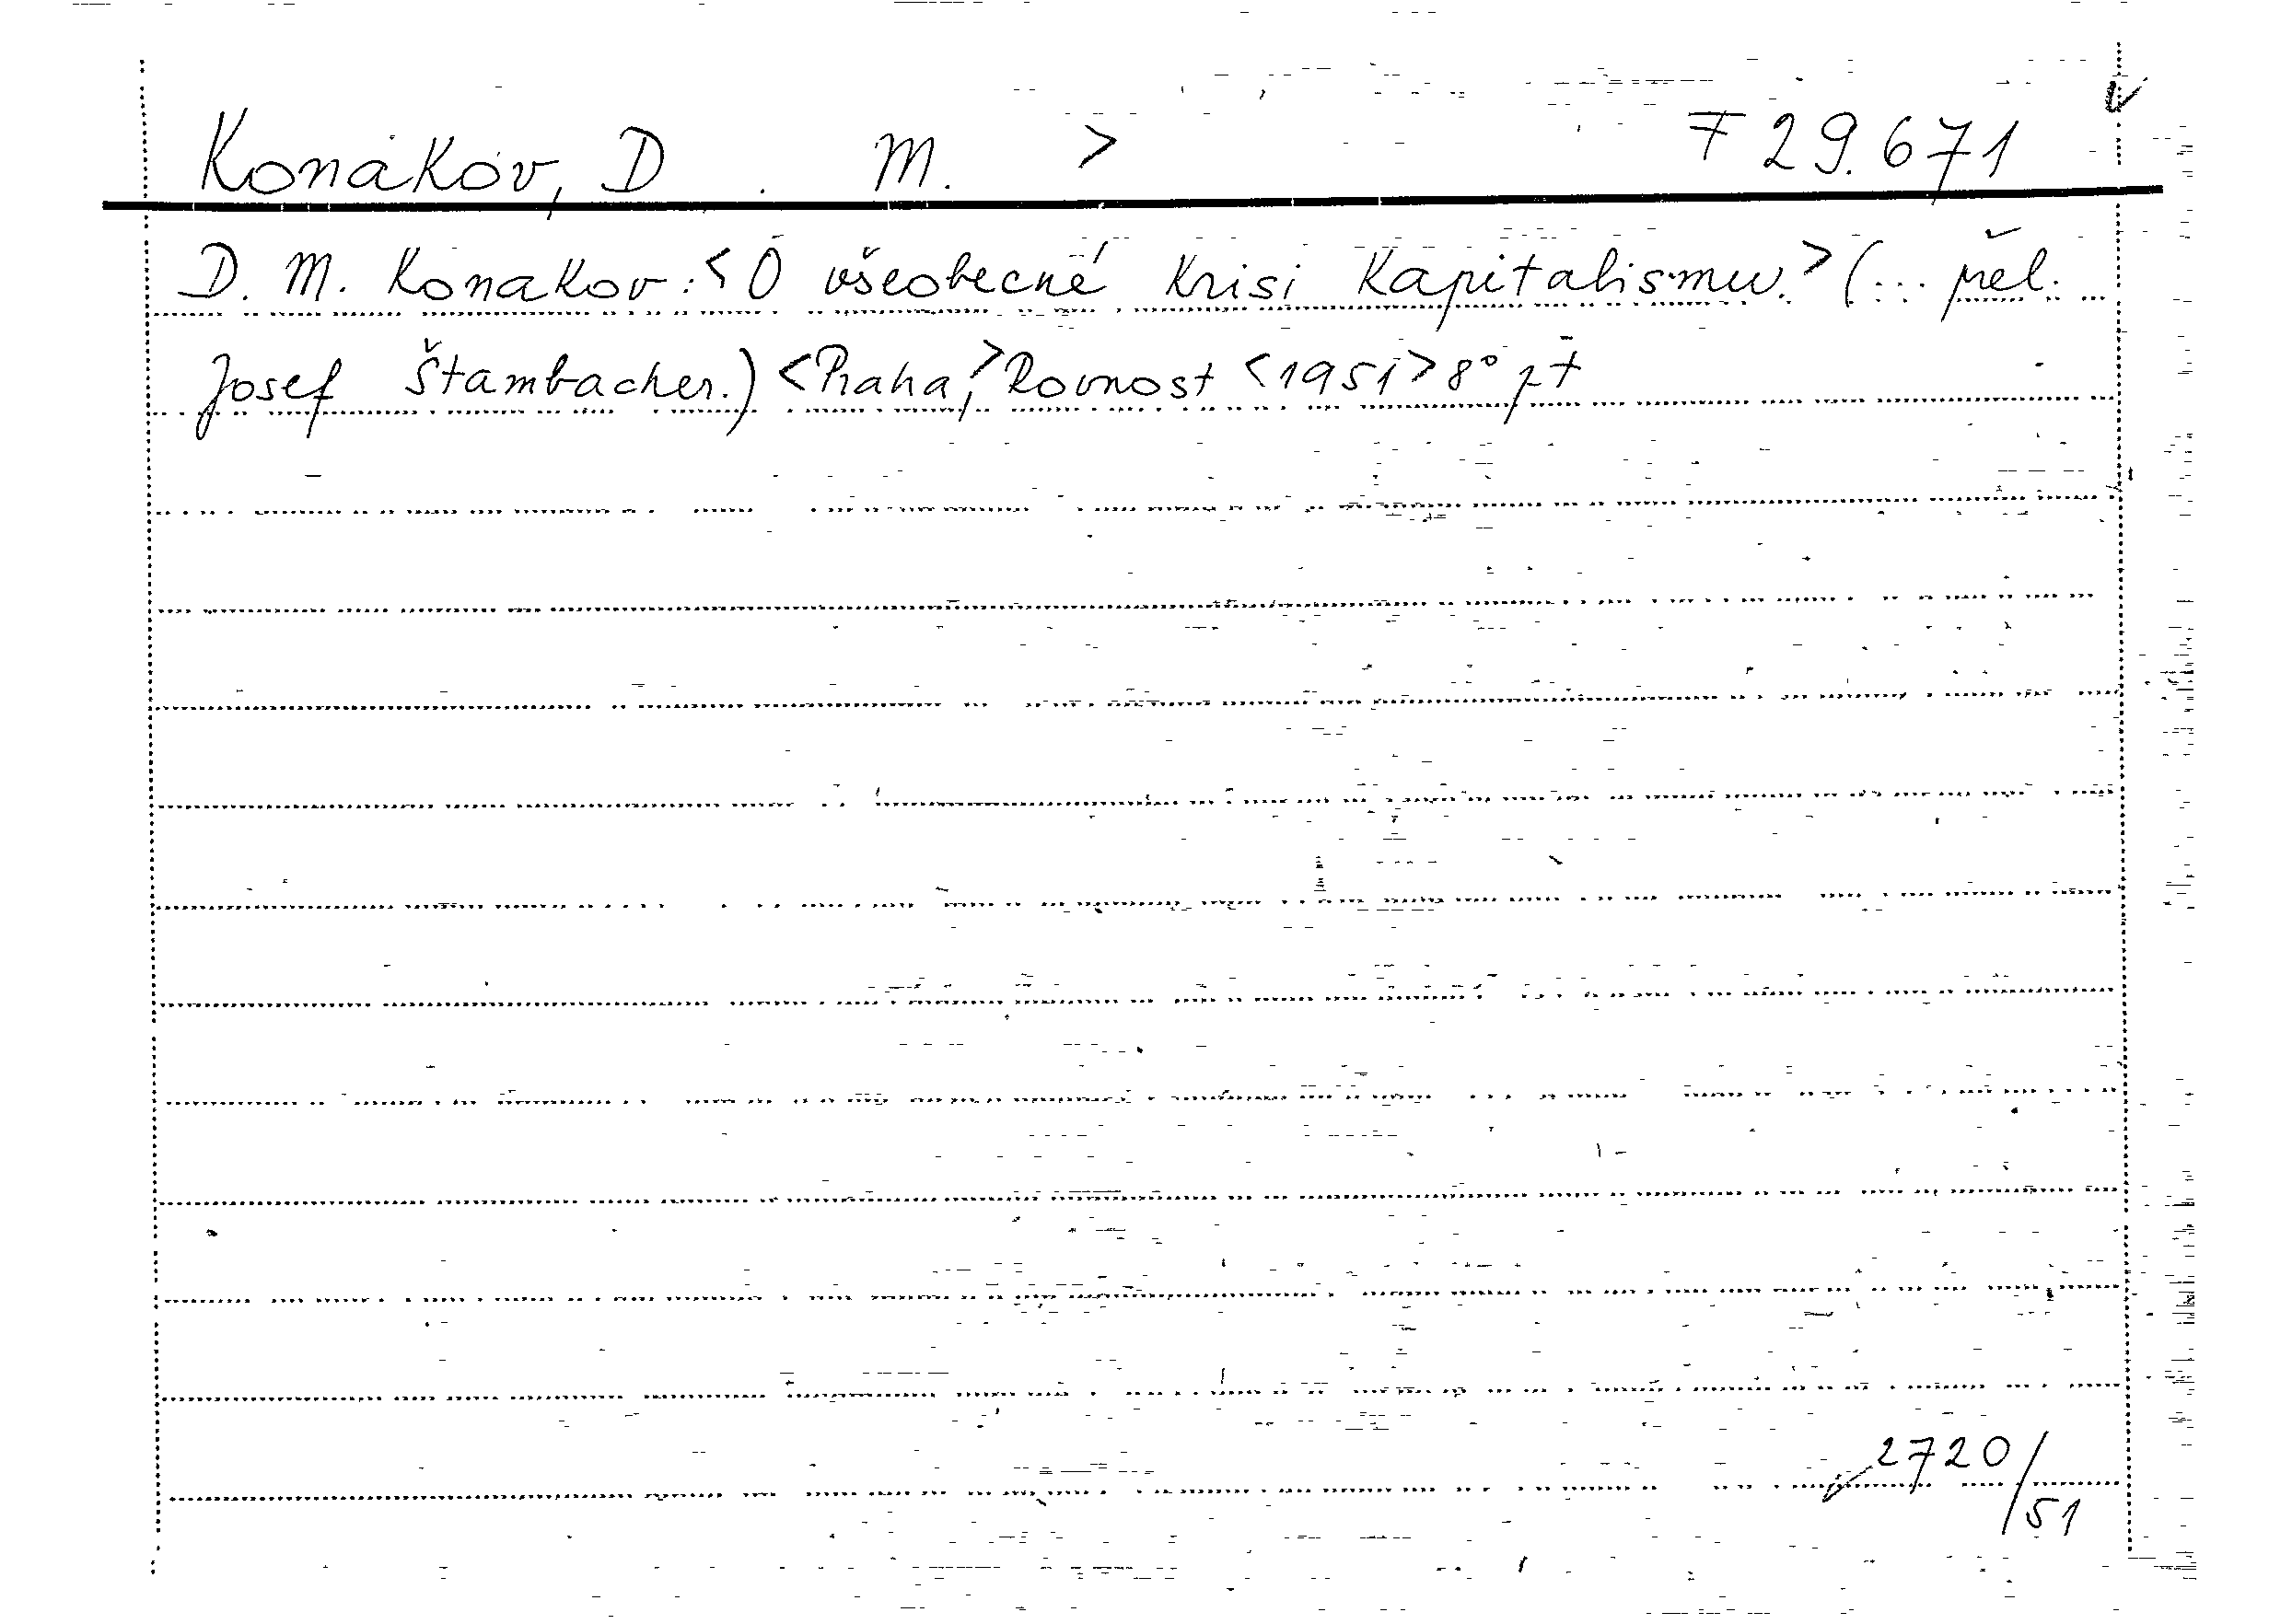 Konakov, D . M. > F 29.671
D. M. Konakov: <O všeobecné krisi kapitalismu.> (... přel.
Josef Štambacher.) <Praha,> Rovnost <1951> 8°
2720/51